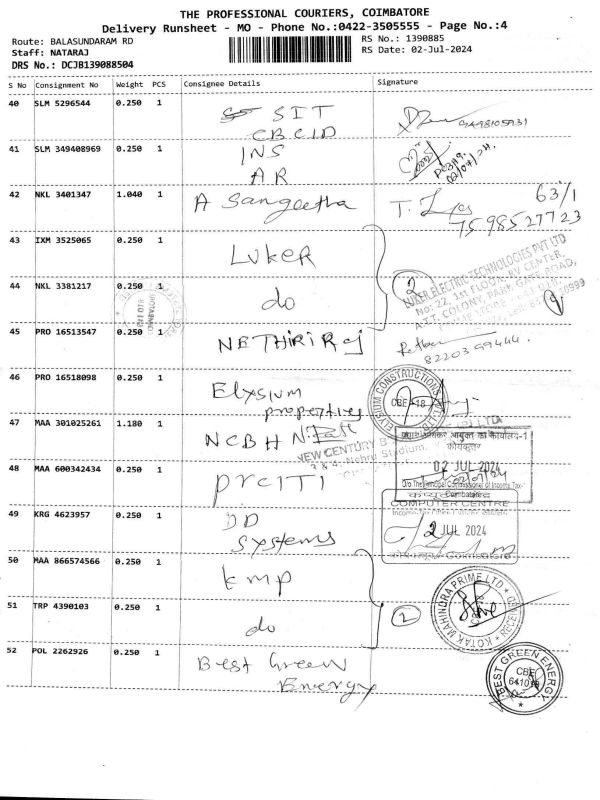 THE PROFESSIONAL COURIERS, COIMBATORE
Delivery Runsheet - MO - Phone No.:0422-3505555 - Page No.:4
Route: BALASUNDARAM RD
RS No.: 1390885
Staff: NATARAJ
RS Date: 02-Jul-2024
DRS No.: DCJB139088504
S No Consignment No Weight PCS Consignee Details Signature
40 SLM 5296544 0.250 1 SIT
CBCID
41 SLM 349408969 0.250 1 INS
AR
42 NKL 3401347 1.040 1 A Sangeetha
63/1
7598527723
43 IXM 3525065 0.250 1 LUKER
2
LUKER ELECTRIC TECHNOLOGIES PVT LTD
No: 22, 1st FLOOR, RV CENTER,
A.T.T. COLONY, PARK GATE ROAD,
44 NKL 3381217 0.250 1 do
45 PRO 16513547 0.250 1 NETHIRIRAJ
8220399444.
46 PRO 16518098 0.250 1 Elysium
properties
ELYSIUM CONSTRUCTIONS
CBE -18
47 MAA 301025261 1.180 1 NCBH
NEW CENTURY B
Nehru Stadium,
आयुक्त का कार्यालय-1
02 JUL 2024
48 MAA 600342434 0.250 1 PrCITI
O/o The Principal Commissioner of Income Tax-
Coimbatore
COMPUTER CENTRE
49 KRG 4623957 0.250 1 DD
Systems
2 JUL 2024
Coimbatore
50 MAA 866574566 0.250 1 kmp
KOTAK MAHINDRA PRIME LTD
51 TRP 4390103 0.250 1 do
2
52 POL 2262926 0.250 1 Best Green
Energy
BEST GREEN ENERGY
CBE